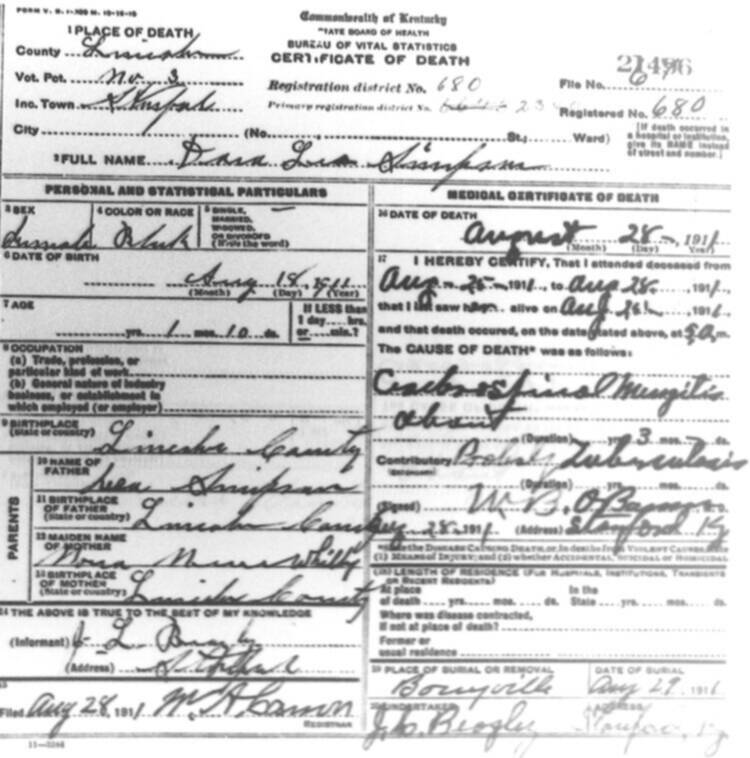 FORM V. S. 1-
Commonwealth of Kentucky
STATE BOARD OF HEALTH
BUREAU OF VITAL STATISTICS
CERTIFICATE OF DEATH
1 PLACE OF DEATH
County Lincoln
Vot. Pct. No. 3
Inc. Town
City (No. St.; Ward)
Registration district No. 680
Primary registration district No.
File No.
Registered No. 680
[If death occurred in a hospital or institution, give its NAME instead of street and number.]
2 FULL NAME Simpson
PERSONAL AND STATISTICAL PARTICULARS
3 SEX
Female
4 COLOR OR RACE
Black
5 SINGLE, MARRIED, WIDOWED, OR DIVORCED (Write the word)
6 DATE OF BIRTH
Aug 18, 1911
(Month) (Day) (Year)
7 AGE
yrs. 1 mos. 10 ds.
If LESS than 1 day hrs. or min.?
8 OCCUPATION
(a) Trade, profession, or particular kind of work
(b) General nature of industry business, or establishment in which employed (or employer)
9 BIRTHPLACE
(State or country) Lincoln County
PARENTS
10 NAME OF FATHER Simpson
11 BIRTHPLACE OF FATHER
(State or country) Lincoln County
12 MAIDEN NAME OF MOTHER
13 BIRTHPLACE OF MOTHER
(State or country) Lincoln County
14 THE ABOVE IS TRUE TO THE BEST OF MY KNOWLEDGE
(Informant)
(Address)
15
Filed Aug 28, 1911
REGISTRAR
11-3286
MEDICAL CERTIFICATE OF DEATH
16 DATE OF DEATH
August 28, 1911
(Month) (Day) (Year)
17 I HEREBY CERTIFY, That I attended deceased from
Aug 25, 1911, to Aug 28, 1911,
that I last saw alive on Aug 1911
and that death occured, on the date stated above, at 9 a m.
The CAUSE OF DEATH* was as follows:
Cerebrospinal Mengitis
about
(Duration) yrs. 3 mos. ds.
Contributory Probably Tuberculosis
(Duration) yrs. mos. ds.
(Signed) W B. O'Bannon
28, 1911 (Address) Stanford Ky
*State the DISEASE CAUSING DEATH, or, in deaths from VIOLENT CAUSES, state
(1) MEANS OF INJURY; and (2) whether ACCIDENTAL, SUICIDAL or HOMICIDAL
(18) LENGTH OF RESIDENCE (FOR HOSPITALS, INSTITUTIONS, TRANSIENTS OR RECENT RESIDENTS)
At place of death yrs. mos. ds. In the State yrs. mos. ds.
Where was disease contracted,
if not at place of death?
Former or
usual residence
19 PLACE OF BURIAL OR REMOVAL
DATE OF BURIAL
Aug 29, 1911
20 UNDERTAKER
ADDRESS
J. C. Beagley